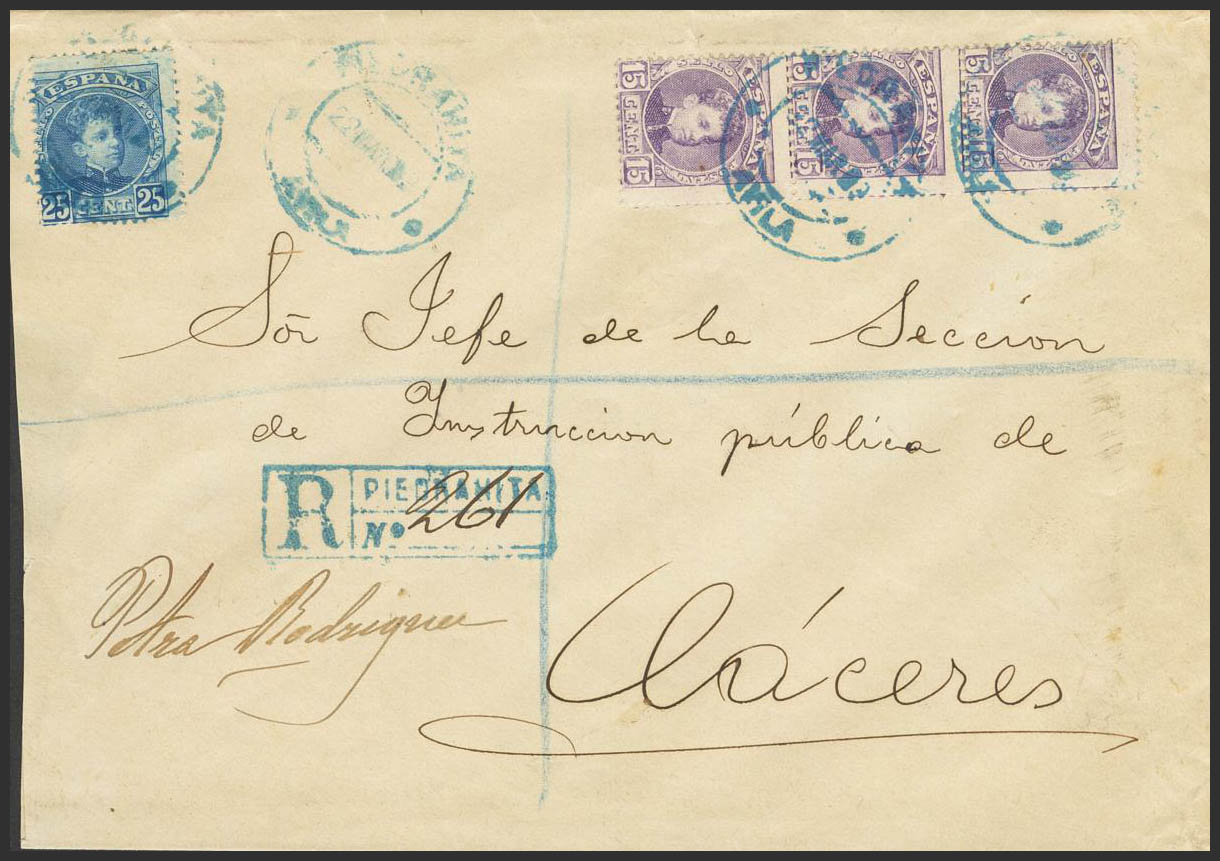 ESPAÑA
25 CENT 25
PIEDRAHITA
AVILA
15 CENT 15
ESPAÑA
15 CENT 15
ESPAÑA
15
ESPAÑA
AVILA
Sor Jefe de la Sección
de Instruccion pública de
R PIEDRAHITA
Nº 261
Petra Rodriguez
Cáceres